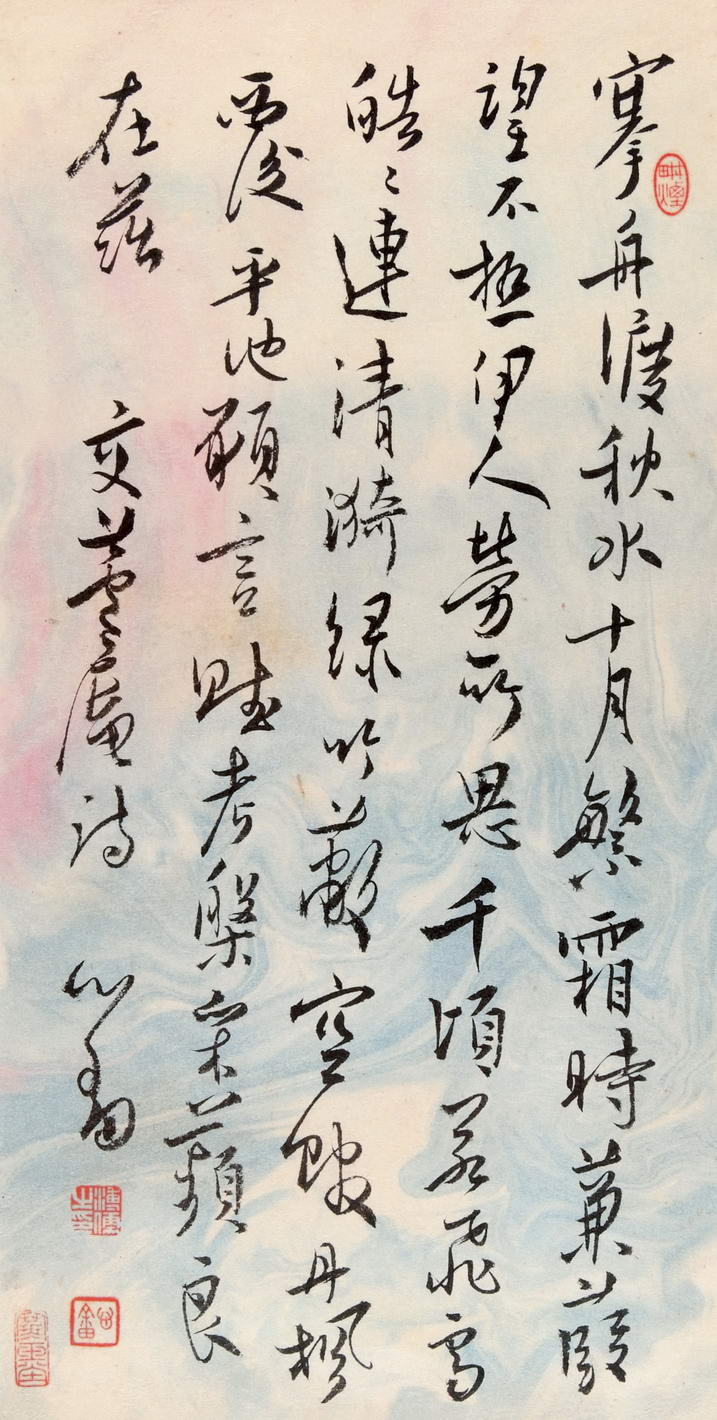 搴舟渡秋水十月繁霜時蒹葭
望不極伊人勞所思千頃若飛雪
皓〻連清漪綠竹蔽空陂丹楓
覆平池願言賦考槃采蘋良
在茲 交蘆庵詩 心畬
溥儒之印